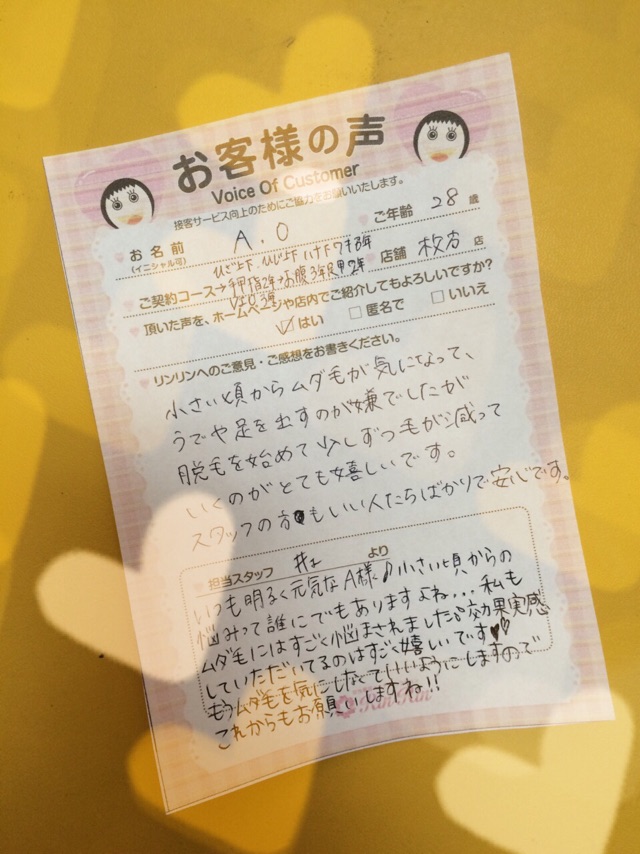 お客様の声
Voice Of Customer
接客サービス向上のためにご協力をお願いいたします。
お名前 A.O ご年齢 28 歳
(イニシャル可)
ひじ上下、ひじ上下 ハナ下 ワキ3年
ご契約コース→手甲指2年→お腹3年足甲2年 店舗 枚方 店
VIO 3年
頂いた声を、ホームページや店内でご紹介してもよろしいですか?
はい 匿名で いいえ
リンリンへのご意見・ご感想をお書きください。
小さい頃からムダ毛が気になって、
うでや足を出すのが嫌でしたが
脱毛を始めて少しずつ毛が減って
いくのがとても嬉しいです。
スタッフの方もいい人たちばかりで安心です。
担当スタッフ 井上 より
いつも明るく元気なA様♪小さい頃からの
悩みって誰にでもありますよね...私も
ムダ毛にはすごく悩まされました 効果実感
していただいてるのはすごく嬉しいです♥♥
もうムダ毛を気にしなくていいようにしますので
これからもお願いしますね!!
RinRin